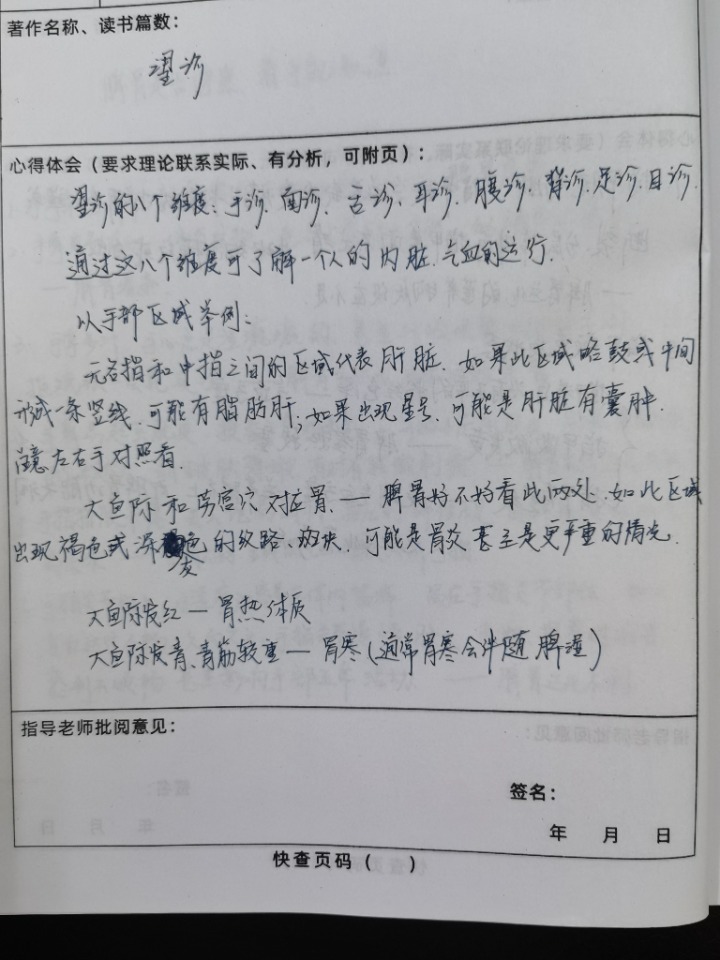 著作名称、读书篇数：
望诊
心得体会（要求理论联系实际、有分析，可附页）：
望诊的八个维度：手诊、面诊、舌诊、耳诊、腰诊、背诊、足诊、目诊.
通过这八个维度可了解一个人的内脏、气血的运行.
以手部区域举例:
无名指和中指之间的区域代表肝脏. 如果此区域略鼓或中间
形成一条竖线、可能有脂肪肝; 如果出现星号、可能是肝脏有囊肿.
注意左右手对照看.
大鱼际和劳宫穴对应胃. — 脾胃好不好看此两处. 如此区域
出现褐色或深麦色的纹路、斑块、可能是胃炎甚至是更严重的情况.
大鱼际发红—胃热体质
大鱼际发青、青筋较重—胃寒(通常胃寒会伴随脾湿)
指导老师批阅意见：
签名：
年 月 日
快查页码（ ）